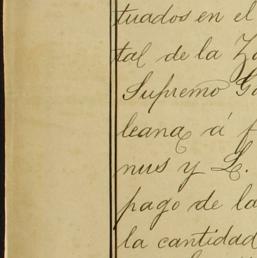 tuados en el
tal de la Za
Supremo Go
leana á f
nus y L.
pago de la
la cantidad